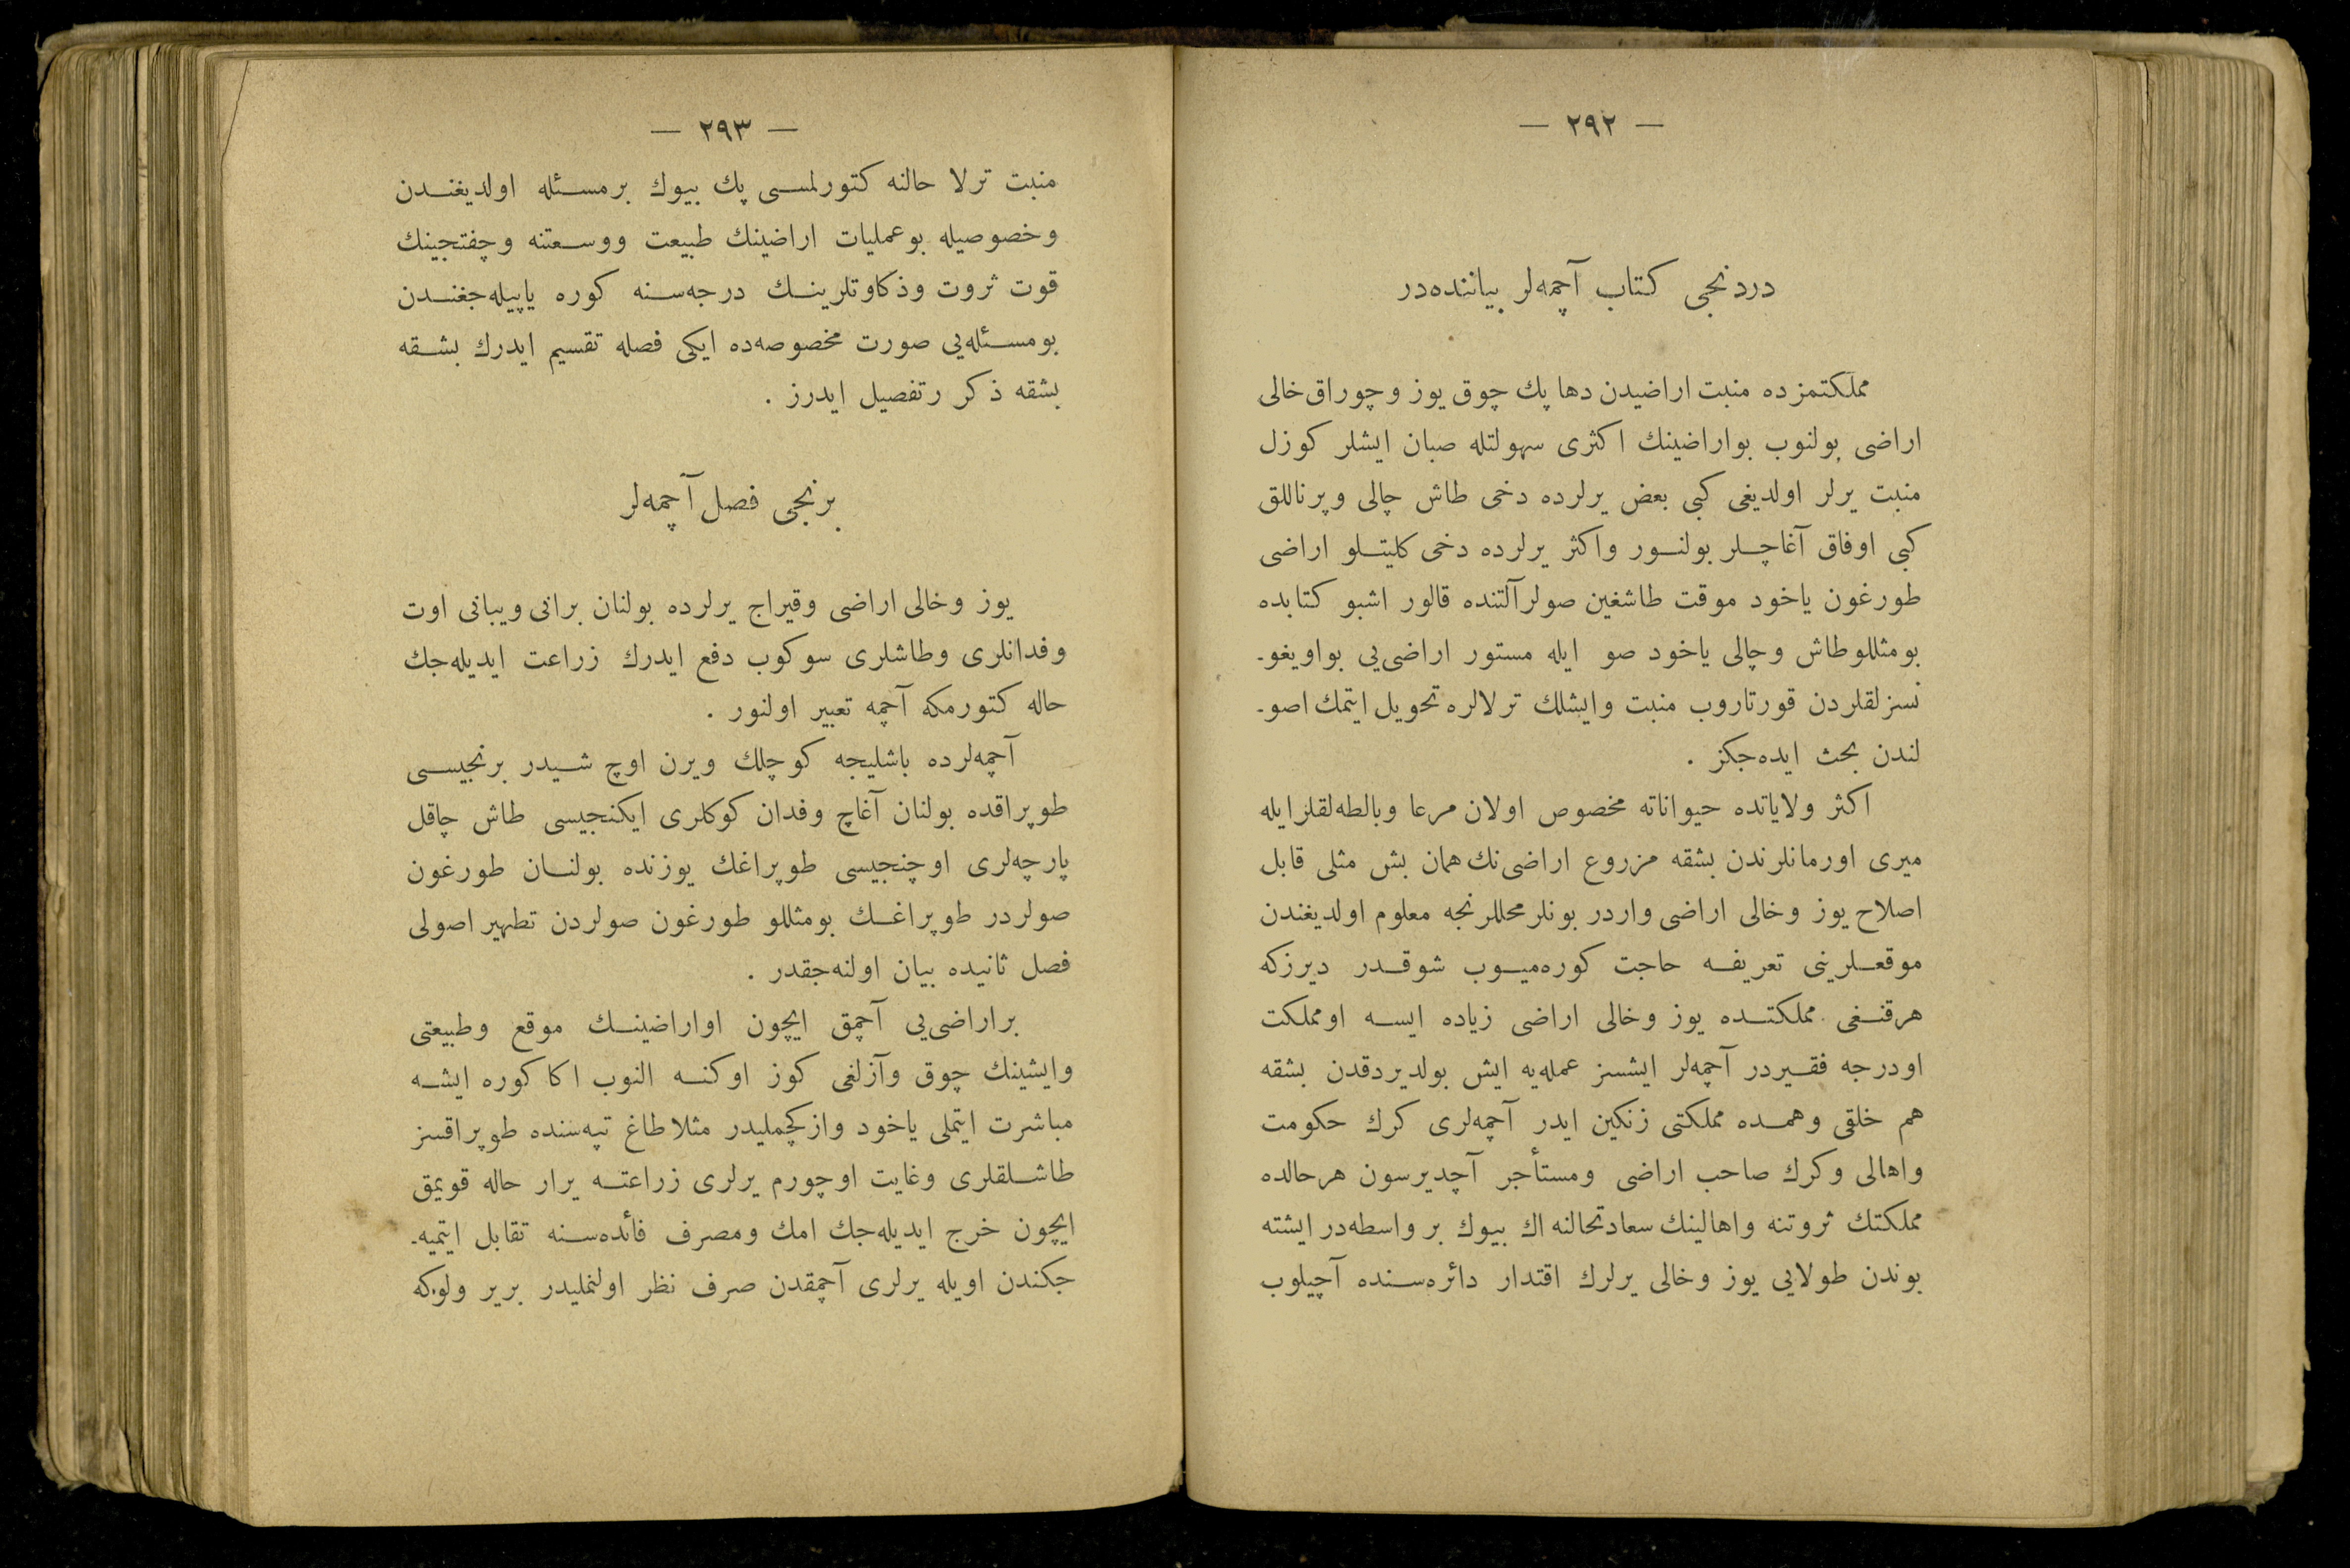 — ٢٩٢ —
دردنجی کتاب آچمه‌لر بیاننده‌در
مملکتمزده منبت اراضیدن دها پك چوق یوز وچوراق خالی
اراضی بولنوب بواراضینك اکثری سهولتله صبان ایشلر کوزل
منبت یرلر اولدیغی کبی بعض یرلرده دخی طاش چالی وپرناللق
کبی اوفاق آغاچلر بولنور واکثر یرلرده دخی کلیتلو اراضی
طورغون یاخود موقت طاشغین صولرآلتنده قالور اشبو کتابده
بومثللوطاش وچالی یاخود صو ایله مستور اراضی‌یی بواویغو-
نسزلقلردن قورتاروب منبت وایشلك ترلالره تحویل ایتمك اصو-
لندن بحث ایده‌جکز .
اکثر ولایاتده حیواناته مخصوص اولان مرعا وبالطه‌لقلرایله
میری اورمانلرندن بشقه مزروع اراضی‌نك همان بش مثلی قابل
اصلاح یوز وخالی اراضی واردر بونلر محللرنجه معلوم اولدیغندن
موقعلرینی تعریفه حاجت کوره‌میوب شوقدر دیرزکه
هرقنغی مملکتده یوز وخالی اراضی زیاده ایسه اومملکت
اودرجه فقیردر آچمه‌لر ایشسز عمله‌یه ایش بولدیردقدن بشقه
هم خلقی وهمده مملکتی زنکین ایدر آچمه‌لری کرك حکومت
واهالی وکرك صاحب اراضی ومستأجر آچدیرسون هرحالده
مملکتك ثروتنه واهالینك سعادتحالنه اك بیوك بر واسطه‌در ایشته
بوندن طولایی یوز وخالی یرلرك اقتدار دائره‌سنده آچیلوب
— ٢٩٣ —
منبت ترلا حالنه کتورلمسی پك بیوك برمسئله اولدیغندن
وخصوصیله بوعملیات اراضینك طبیعت ووسعتنه وچفتجینك
قوت ثروت وذکاوتلرینك درجه‌سنه کوره یاپیله‌جغندن
بومسئله‌یی صورت مخصوصه‌ده ایکی فصله تقسیم ایدرك بشقه
بشقه ذکر رتفصیل ایدرز .
برنجی فصل آچمه‌لر
یوز وخالی اراضی وقیراج یرلرده بولنان برانی ویبانی اوت
وفدانلری وطاشلری سوکوب دفع ایدرك زراعت ایدیله‌جك
حاله کتورمکه آچمه تعبیر اولنور .
آچمه‌لرده باشلیجه کوچلك ویرن اوچ شیدر برنجیسی
طوپراقده بولنان آغاچ وفدان کوکلری ایکنجیسی طاش چاقل
پارچه‌لری اوچنجیسی طوپراغك یوزنده بولنان طورغون
صولردر طوپراغك بومثللو طورغون صولردن تطهیر اصولی
فصل ثانیده بیان اولنه‌جقدر .
براراضی‌یی آچمق ایچون اواراضینك موقع وطبیعتی
وایشینك چوق وآزلغی کوز اوکنه النوب اکا کوره ایشه
مباشرت ایتملی یاخود وازکچملیدر مثلا طاغ تپه‌سنده طوپراقسز
طاشلقلری وغایت اوچورم یرلری زراعته یرار حاله قویمق
ایچون خرج ایدیله‌جك امك ومصرف فائده‌سنه تقابل ایتمیه-
جکندن اویله یرلری آچمقدن صرف نظر اولنملیدر بریر ولوکه